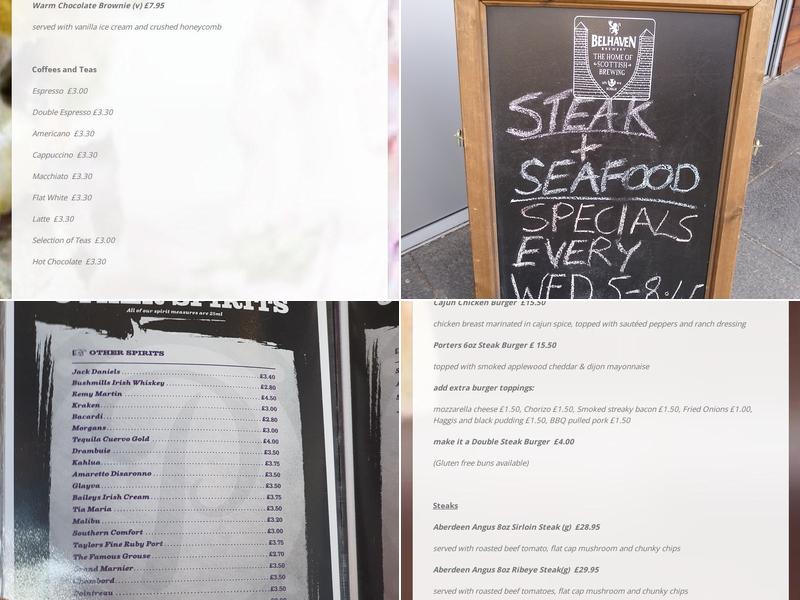 Warm Chocolate Brownie (v) £7.95
served with vanilla ice cream and crushed honeycomb
Coffees and Teas
Espresso £3.00
Double Espresso £3.30
Americano £3.30
Cappuccino £3.30
Macchiato £3.30
Flat White £3.30
Latte £3.30
Selection of Teas £3.00
Hot Chocolate £3.30
BELHAVEN
BREWERY
THE HOME OF
SCOTTISH
BREWING
STEAK
+
SEAFOOD
SPECIALS
EVERY
WED 5-8:15
OTHER SPIRITS
All of our spirit measures are 25ml
OTHER SPIRITS
Jack Daniels £3.40
Bushmills Irish Whiskey £2.80
Remy Martin £4.50
Kraken £3.00
Bacardi £2.80
Morgans £3.00
Tequila Cuervo Gold £4.00
Drambuie £3.50
Kahlua £3.75
Amaretto Disaronno £3.50
Glayva £3.50
Baileys Irish Cream £3.75
Tia Maria £3.50
Malibu £3.20
Southern Comfort £3.00
Taylors Fine Ruby Port £3.75
The Famous Grouse £2.70
Grand Marnier £3.50
Chambord £3.50
Cointreau £3.50
Cajun Chicken Burger £15.50
chicken breast marinated in cajun spice, topped with sautéed peppers and ranch dressing
Porters 6oz Steak Burger £ 15.50
topped with smoked applewood cheddar & dijon mayonnaise
add extra burger toppings:
mozzarella cheese £1.50, Chorizo £1.50, Smoked streaky bacon £1.50, Fried Onions £1.00,
Haggis and black pudding £1.50, BBQ pulled pork £1.50
make it a Double Steak Burger £4.00
(Gluten free buns available)
Steaks
Aberdeen Angus 8oz Sirloin Steak (g) £28.95
served with roasted beef tomato, flat cap mushroom and chunky chips
Aberdeen Angus 8oz Ribeye Steak(g) £29.95
served with roasted beef tomatoes, flat cap mushroom and chunky chips